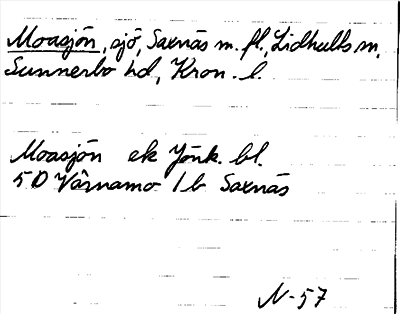 Moasjön, sjö, Saxnäs m. fl., Lidhults sn,
Sunnerbo hd, Kron. l.
Moasjön ek Jönk. bl.
5D Värnamo 1b Saxnäs
N-57